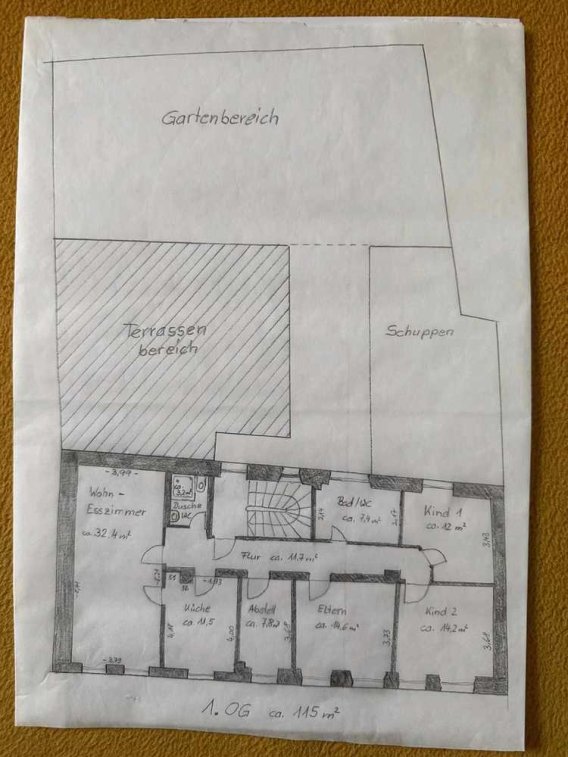 Gartenbereich
Terrassen
bereich
Schuppen
3,99
Wohn-
Esszimmer
ca. 32,4 m²
Dusche
WC
Bad/WC
ca. 7,4 m²
2,14
2,17
Kind 1
ca. 12 m²
3,43
Flur ca. 11,7 m²
51
1,93
Küche
ca. 11,5
4,18
4,00
Abstell
ca. 7,8 m²
Eltern
ca. 14,6 m²
3,73
Kind 2
ca. 14,2 m²
3,68
3,79
1. OG ca. 115 m²